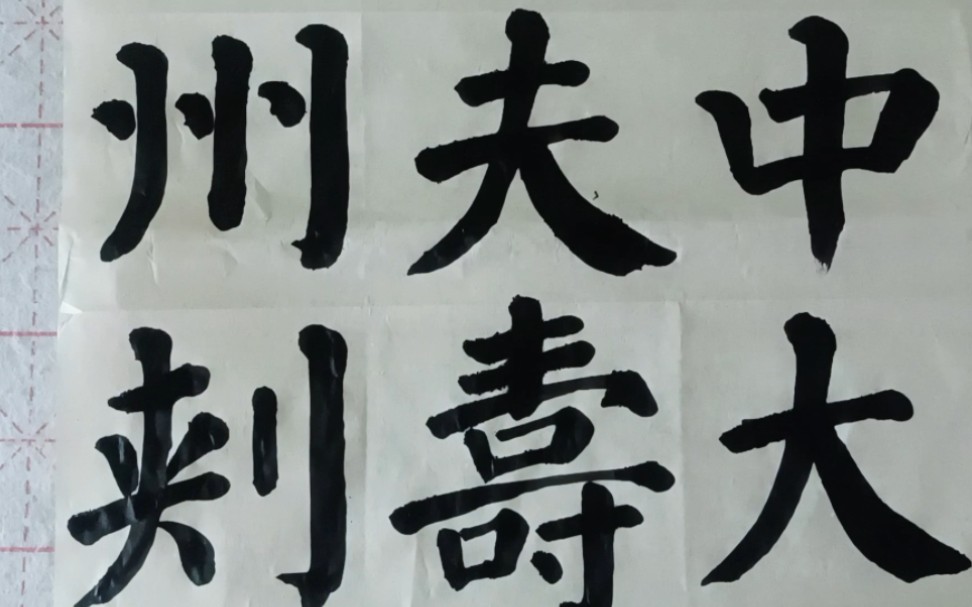 中大
夫壽
州刺